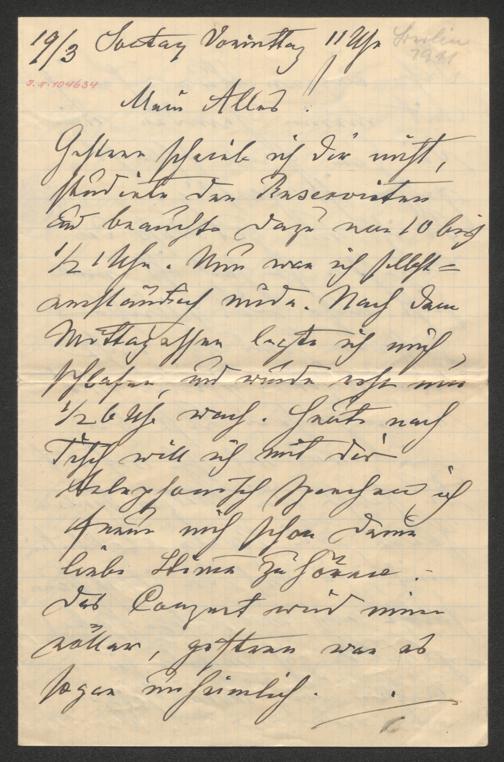 19/3 Sontag Vormittag 11 Uhr
Berlin
1911
I.N. 104634
Mein Alles!
Gestern schrieb ich Dir nicht,
studierte den Reservisten
und brauchte dazu von 10 bis
1/2 1 Uhr. Nun war ich selbst=
verständlich müde. Nach dem
Mittagessen legte ich mich
schlafen und wurde erst um
1/2 6 Uhr wach. Heute nach
Tisch will ich mit Dir
telephonisch sprechen ich
freue mich schon deine
liebe Stimme zu hören.
Das Conzert wird immer
voller, gestern war es
sogar unheimlich.